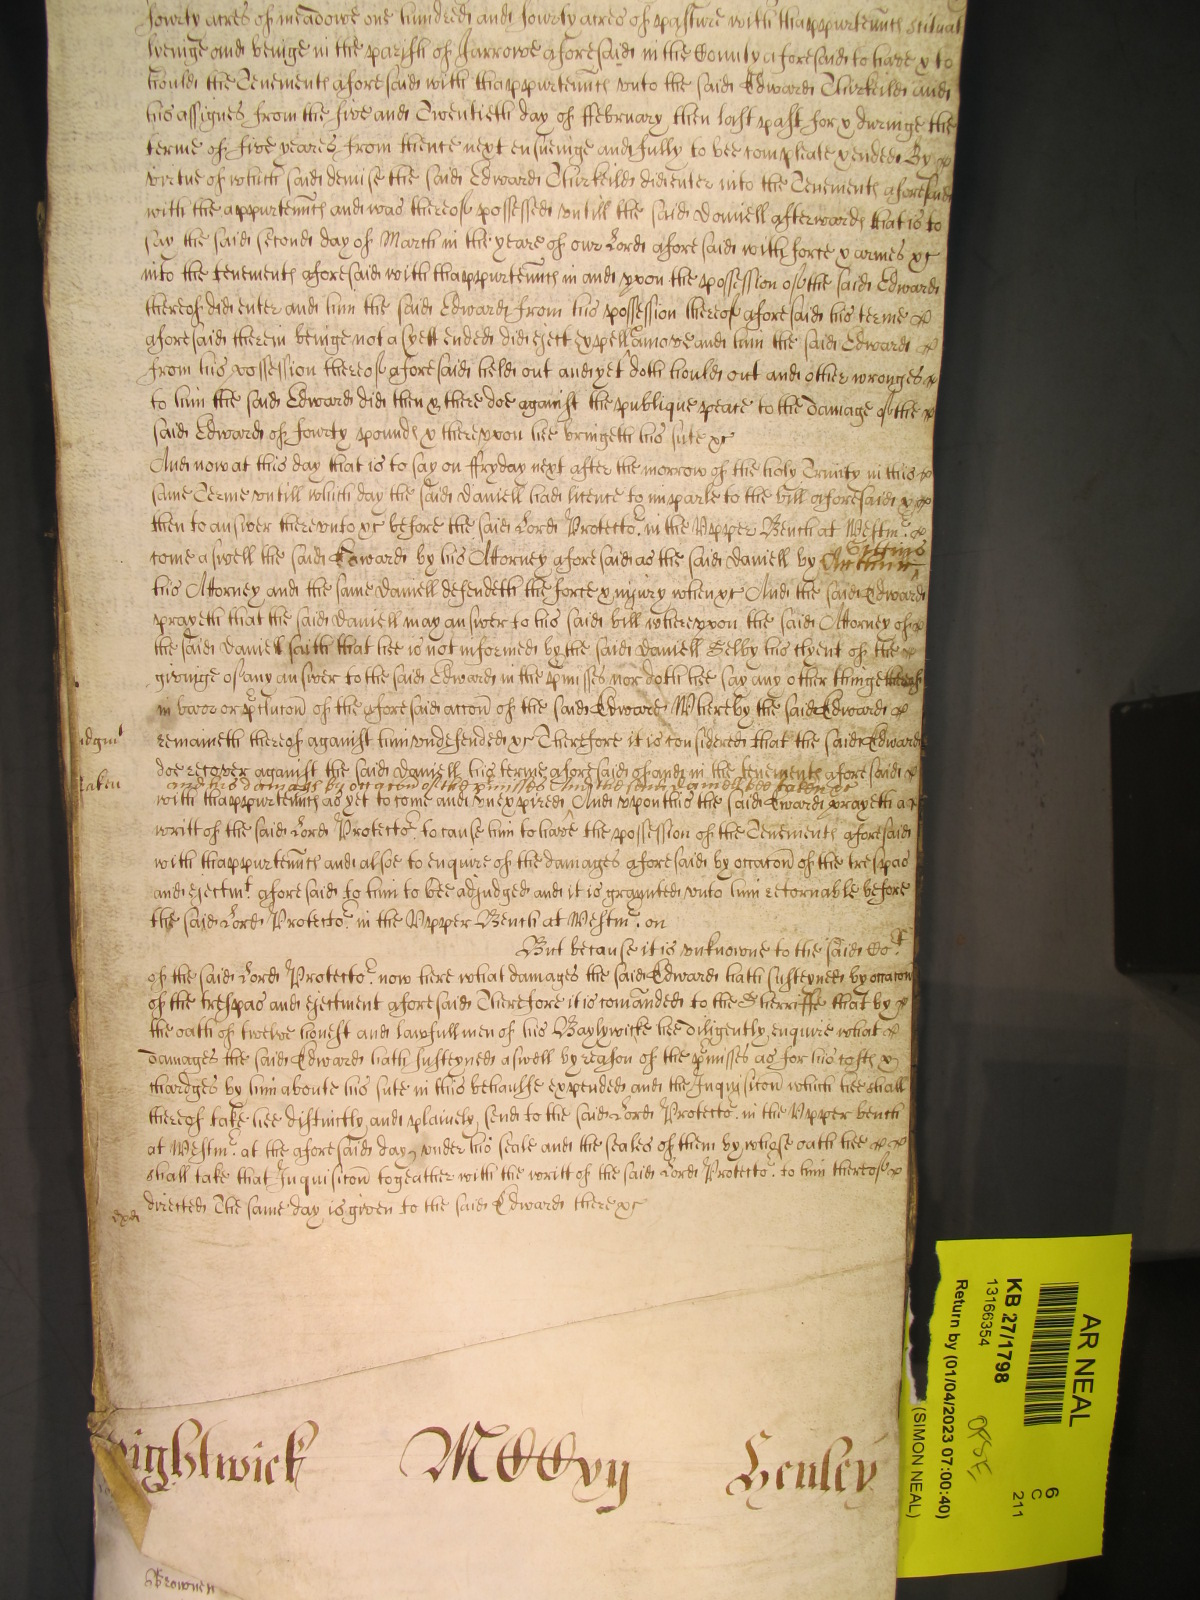 fowrty acres of meadowe one hundred and fowrty acres of pasture with thappurtennces scituat
lyeinge and beinge in the parish of Jarrowe aforesaid in the County aforesaid to have & to
hould the Tenements aforesaid with thappurtennces unto the said Edward Thirkeild and
his assignes from the five and Twentieth day of ffebruary then last past for & duringe the
terme of five yeares from thence next ensueinge and fully to bee compleate & ended By
virtue of which said demise the said Edward Thirkeild did enter into the Tenements aforesaid
with the appurtennces and was thereof possessed untill the said Daniell afterwards that is to
say the said second day of March in the yeare of our Lord aforesaid with force & armes &c
into the tenements aforesaid with thappurtennces in and upon the possession of the said Edward
thereof did enter and him the said Edward from his possession thereof aforesaid his terme
aforesaid therein beinge not as yett ended did eject expell & amove and him the said Edward
from his possession thereof aforesaid held out and yet doth hould out and other wronges
to him the said Edward did then & there doe against the publique peace to the damage of the
said Edward of fowrty pounds & thereupon hee bringeth his sute &c
And now at this day that is to say on ffryday next after the morrow of the holy Trinity in this
same Terme untill which day the said Daniell had licence to imparle to the bill aforesaid &
then to answer thereunto &c before the said Lord Protector. in the Upper Bench at Westm.
come aswell the said Edward by his Attorney aforesaid as the said Daniell by
his Attorney and the same Daniell defendeth the force & injury when &c And the said Edward
prayeth that the said Daniell may answer to his said bill whereupon the said Attorney of
the said Daniell saith that hee is not informed by the said Daniell Selby his clyent of the
giveinge of any answer to the said Edward in the pmisses nor doth hee say any other thinge
in barr or pclucon of the aforesaid accon of the said Edward Whereby the said Edward
Judgmt remaineth thereof against him undefended &c Therefore it is considered that the said Edward
doe recover against the said Daniell his terme aforesaid of and in the tenements aforesaid
and his damages by occacon of the pmisses And the said Daniell bee taken &c
with thappurtennces as yet to come and unexpired And upon this the said Edward prayeth a
writt of the said Lord Protector. to cause him to have the possession of the Tenements aforesaid
with thappurtennces and alsoe to enquire of the damages aforesaid by occacon of the trespas
and ejectmt. aforesaid to him to bee adjudged and it is graunted unto him retornable before
the said Lord Protector. in the Upper Bench at Westm. on
But because it is unknowne to the said Cort
of the said Lord Protector. now here what damages the said Edward hath susteyned by occacon
of the trespas and ejectment aforesaid Therefore it is comanded to the Sherriffe that by
the oath of twelve honest and lawfull men of his Baylywicke hee diligently enquire what
damages the said Edward hath susteyned aswell by reason of the pmisses as for his costs &
chardges by him aboute his sute in this behaulfe expended and the Inquisicon which hee shall
thereof take hee distinctly and plainely send to the said Lord Protector. in the Upper bench
at Westm. at the aforesaid day under his seale and the seales of them by whose oath hee
shall take that Inquisicon togeather with the writt of the said Lord Protector. to him thereof
directed The same day is given to the said Edward there &c
Henley
Browne
AR NEAL
KB 27/1798
13166354
Return by (01/04/2023 07:00:40)
(SIMON NEAL)
6
C
211